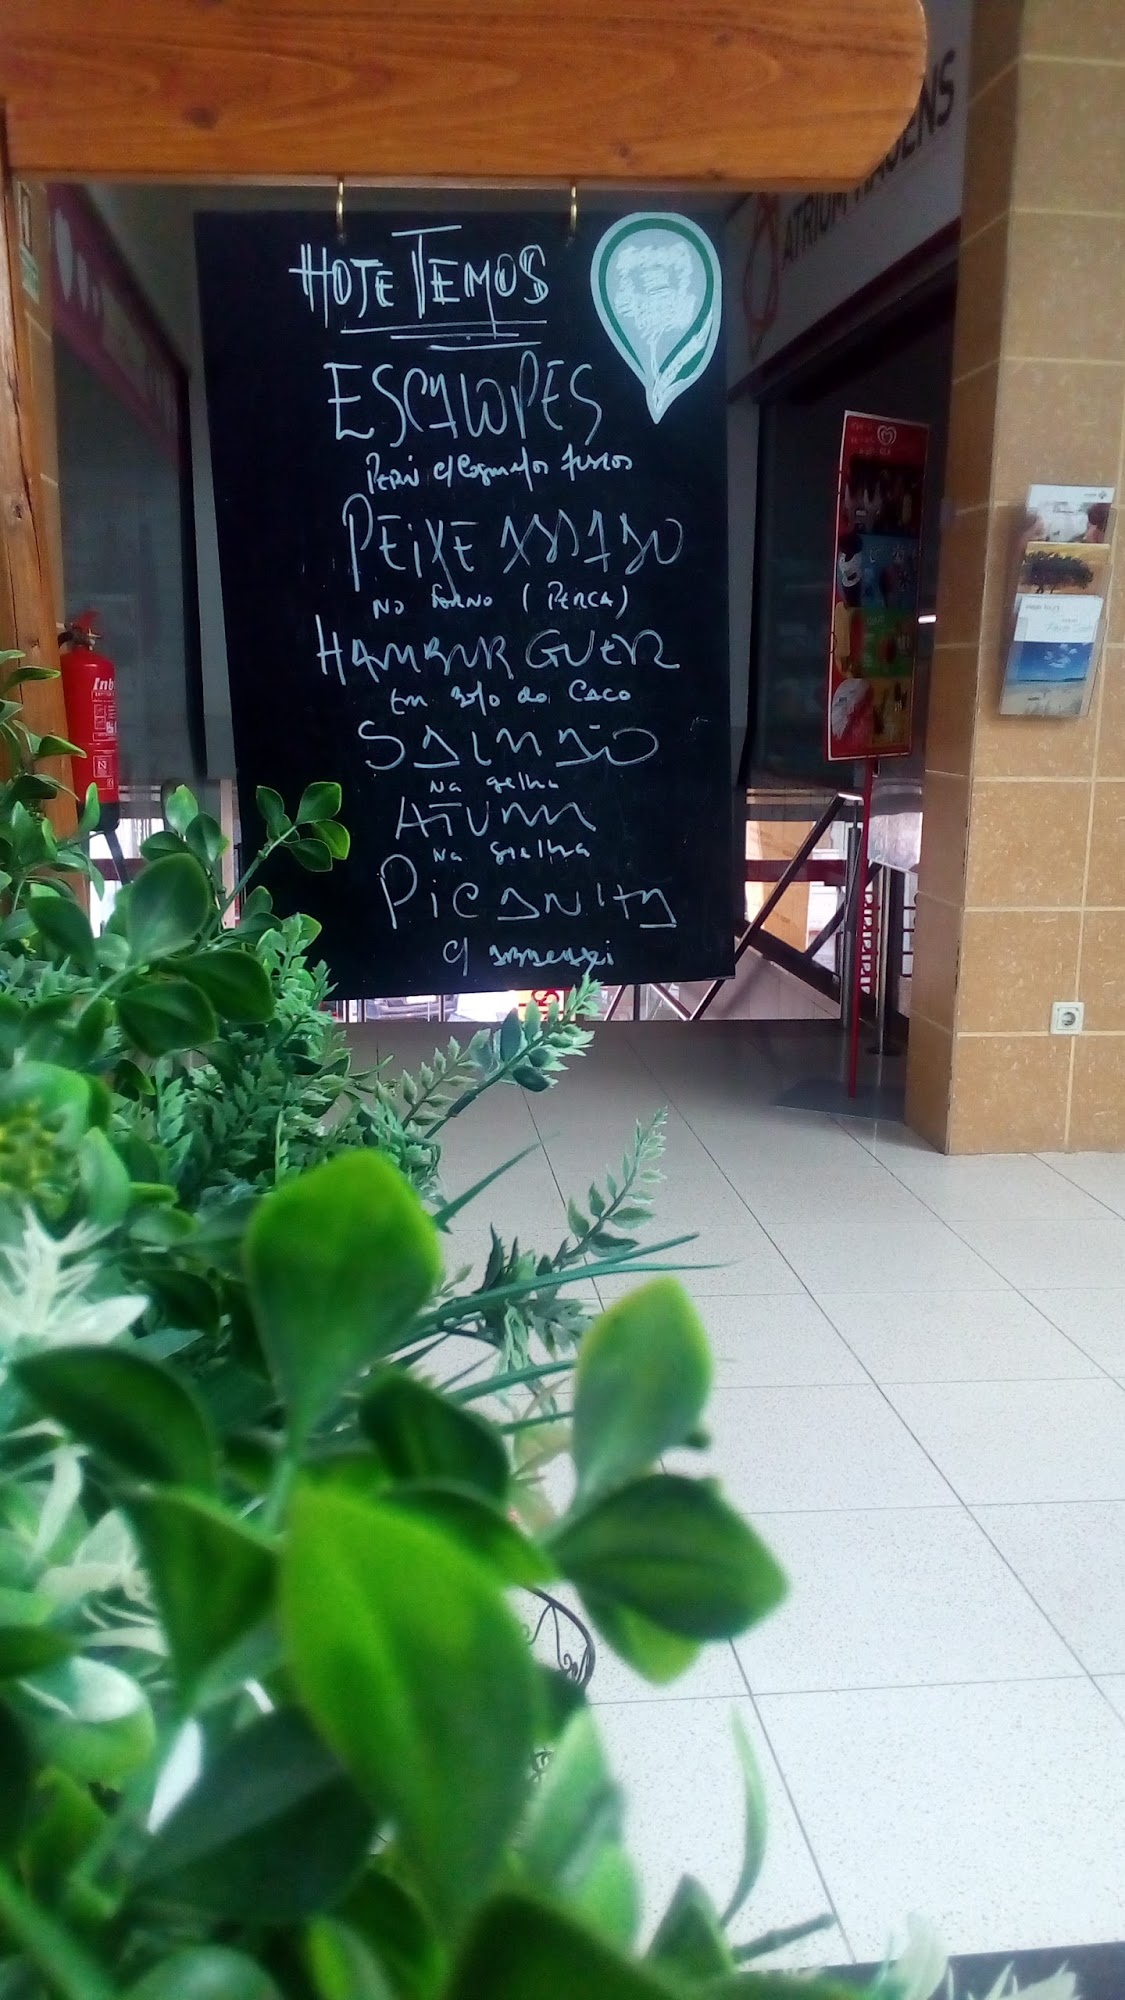 HOJE TEMOS
ESCALOPES
PERU c/ Cogumelos frescos
PEIXE ASSADO
NO FORNO (PERCA)
HAMBURGUER
Em Bolo do CACO
SALMÃO
Na grelha
ATUM
Na Grelha
PICANHA
c/
ATRIUM VIAGENS
Inb